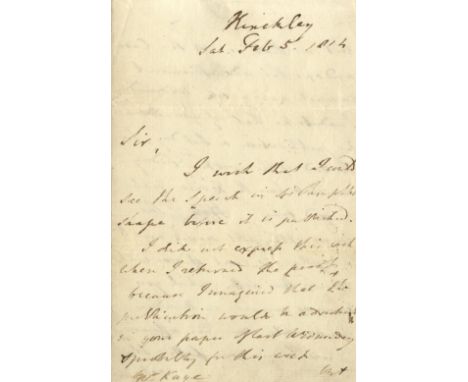 Hinckley
Sat. Feb 5. 1814
Sir,
I wish that I could
see the Speech in its Pamphlet
shape before it is published.
I did not express this wish
when I returned the proof,
because I imagined that the
publication would be advertised
in your paper of last Wednesday
&probably for this week
Mr Kaye